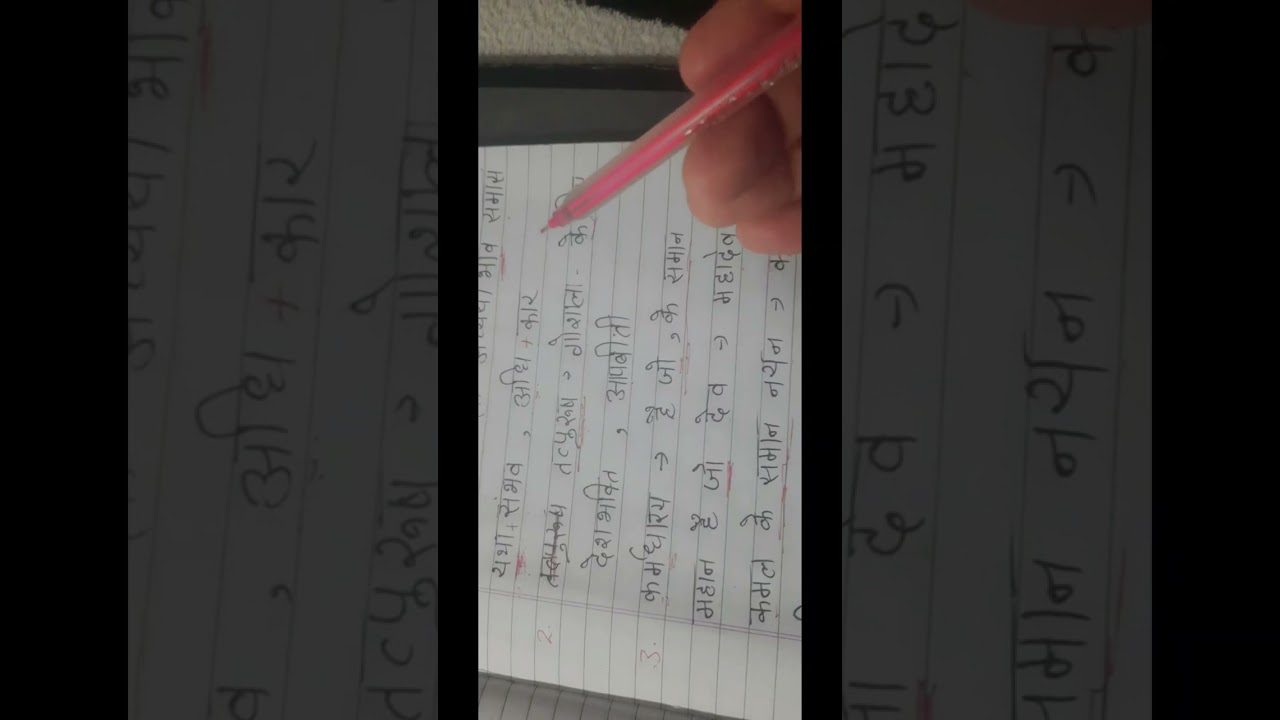 भाव समास
यथा+संभव , अधि+कार
2. तत्पुरूष → गोशाला - के
देशभक्ति , आपबीती
3. कर्मधारय → है जो , के समान
महान है जो देव → महादेव
कमल के समान नयन → क